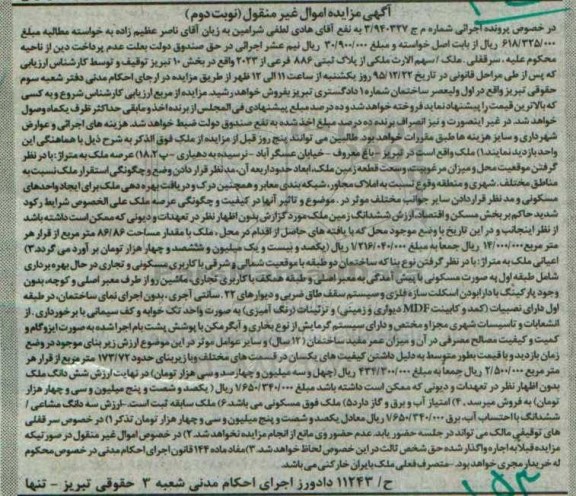 آگهی مزایده اموال غیر منقول (نوبت دوم)
در خصوص پرونده اجرائی شماره م ج ۳/۹۴۰۳۲۷ به نفع آقای هادی لطفی شرامین به زیان آقای ناصر عظیم زاده به خواسته مطالبه مبلغ
۶۱۸/۳۲۵/۰۰۰ ریال از بابت اصل خواسته و مبلغ ۳۰/۹۰۰/۰۰۰ ریال نیم عشر اجرائی در حق صندوق دولت بعلت عدم پرداخت دین از ناحیه
محکوم علیه ، سرقفلی . ملک / سهم الارث ملکی از پلاک ثبتی ۸۸۶ فرعی از ۲۰۲۳ واقع در بخش ۱۰ تبریز توقیف و توسط کارشناس ارزیابی
که پس از طی مراحل قانونی در تاریخ ۹۵/۱۲/۲۲ روز یکشنبه از ساعت ۱۱ الی ۱۲ ظهر از طریق مزایده در اجای احکام مدنی دفتر شعبه سوم
حقوقی تبریز واقع در اول ولیعصر ساختمان شماره ۱ دادگستری تبریز بفروش خواهد رسید. مزایده از مربع ارزیابی کارشناس شروع و به کسی
که بالاترین قیمت را پیشنهاد نماید فروخته خواهد شد و ده درصد مبلغ پیشنهادی فی المجلس از برنده اخذ و مابقی حداکثر ظرف یکماه وصول
خواهد شد. در غیر اینصورت و نیز انصراف برنده ده درصد مبلغ اخذ شده به نفع صندوق دولت ضبط خواهد شد. هزینه های اجرائی و عوارض
شهرداری و سایز هزینه ها طبق مقررات خواهد بود. طالبین می توانند پنج روز قبل از مزایده از ملک فوق الذکر به شرح ذیل با هماهنگی این
واحد بازدید نمایند. ۱) ملک واقع است در تبریز - باغ معروف - خیابان عسگر آباد - نرسیده به دهیاری - پ ۱۸. ۲) عرصه ملک به متراژ: با در نظر
گرفتن موقعیت محل و میزان مرغوبیت وسعت قطعه زمین ملک، ابعاد حدود اربعه آن، مدنظر قرار دادن وضع و چگونگی استقرار ملک نسبت به
مناطق مختلف . شهری و منطقه وقوع نسبت به املاک مجاور، شبکه بندی معابر و همچنین درک و دریافت بهره دهی ملک برای ایجاد واحدهای
مسکونی و مد نظر قراردادن سایر جوانب مختلف موثر در . موضوع و تاثیر آنها در کیفیت و چگونگی عرصه ملک علی الخصوص شرایط رکود
شدید حاکم بر بخش مسکن و اقتصاد، ارزش ششدانگ زمین ملک مورد گزارش بدون اظهار نظر در تعهدات و دیونی که ممکن است داشته باشد
از نظر اینجانب و در این تاریخ با وضع موجود محل که با یافته های حاصل از اقدام در محل ، ملک با مقدار مساحت ۸۶/۸۶ متر مربع از قرار هر
متر مربع ۱۴/۰۰۰/۰۰۰ ریال جمعا به مبلغ ۱/۲۱۶/۰۴۰/۰۰۰ ریال (یکصد و بیست و یک میلیون و ششصد و چهار هزار تومان بر آورد می گردد. ۳)
اعیانی ملک به متراژ: با در نظر گرفتن نوع بنا که ساختمان دو طبقه با موقعیت شمالی و شرقی با کاربری مسکونی و تجاری در حال بهره برداری
شامل طبقه اول به صورت مسکونی با پیش آمدگی به معبر اصلی و طبقه همکف با کاربری تجاری، ماشین رو از طرف معبر اصلی و کوچه، بدون
وجود پارکینگ با دارا بودن اسکلت سازه فلزی و سیستم سقف طاق ضربی و دیوارهای ۲۲ . سانتی آجری ، بدون اجرای نمای ساختمان، در طبقه
اول دارای نصبیات (کمد و کابینت MDF دیواری و زمینی) و تزئینات (رنگ آمیزی) به صورت واحد تک خوابه و کف سیمانی با برخورداری . از
انشعابات و تاسیسات شهری مجزا و مختص و دارای سیستم گرمایش از نوع بخاری و آبگرمکن با پوشش پشت بام اجرا شده به صورت ایزوگام و
کمیت و کیفیت مصالح مصرفی در آن و میزان عمر مفید ساختمان (۱۲ سال) و سایر عوامل موثر در این موضوع ارزش زیر بنای موجود در وضع
زمان بازدید و با قیمت بطور متوسط به دلیل داشتن کیفیت های یکسان در قسمت های مختلف و با زیربنای حدود ۱۷۳/۷۲ متر مربع از قرار هر
متر مربع ۲/۵۰۰/۰۰۰ ریال جمعا به مبلغ ۴۳۴/۳۰۰/۰۰۰ ریال (چهل و سه میلیون و چهارصد و سی هزار تومان) در نهایت ارزش شش دانگ ملک
بدون اظهار نظر در تعهدات و دیونی که ممکن است داشته باشد مبلغ ۱/۶۵۰/۳۴۰/۰۰۰ ریال (یکصد و شصت و پنج میلیون و سی و چهار هزار
تومان) به فروش میرسد. ۴) امتیاز آب و برق و گاز دارد ۵) ملک فوق مسکونی می باشد ۶) ملک سابقه ثبت است. - ارزش سه دانگ مشاعی /
ششدانگ با احتساب آب، برق ۱/۶۵۰/۳۴۰/۰۰۰ ریال معادل یکصد و شصت و پنج میلیون و سی و چهار هزار تومان تذکر ۱) در خصوص سرقفلی
های توقیفی مالک می تواند در جلسه حضور یابد. عدم حضور وی مانع از انجام مزایده نخواهد شد. ۲) در خصوص اموال غیر منقول در صورتیکه
مزایده قبلا به اجاره واگذار شده حق شخص ثالث در این خصوص لحاظ خواهد شد. ۳) مفاد ماده ۱۴۴ قانون اجرای احکام مدنی در خصوص محکوم
له خریدار مجری خواهد بود. - متصرف فعلی ملک با ایران خارکنی می باشد.
ح/ ۱۱۲۴۳ دادورز اجرای احکام مدنی شعبه ۳ حقوقی تبریز - تنها